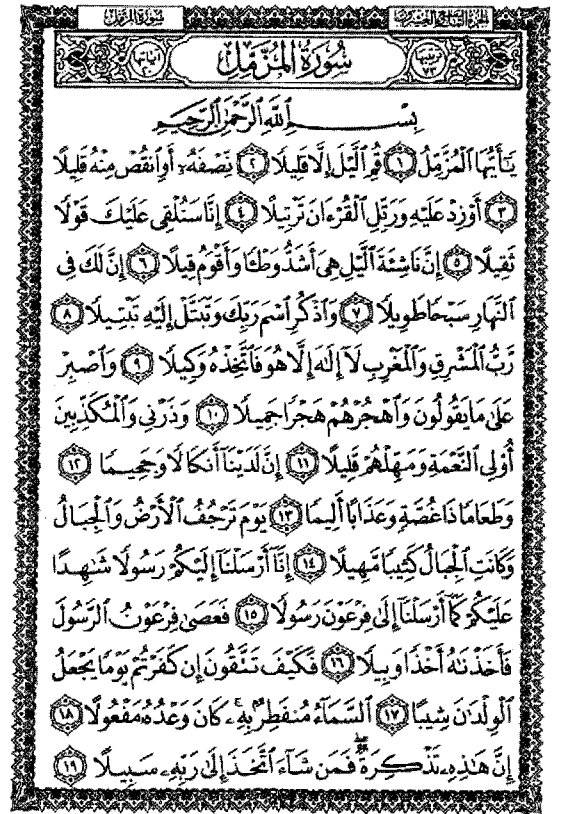 الجزء التاسع والعشرون سورة المزمل
ترتيبها ٧٣ سُورَةُ المُزَّمِّل آياتها ٢٠
بِسْمِ اللَّهِ الرَّحْمَٰنِ الرَّحِيمِ
يَٰٓأَيُّهَا ٱلْمُزَّمِّلُ ١ قُمِ ٱلَّيْلَ إِلَّا قَلِيلًا ٢ نِّصْفَهُۥٓ أَوِ ٱنقُصْ مِنْهُ قَلِيلًا
٣ أَوْ زِدْ عَلَيْهِ وَرَتِّلِ ٱلْقُرْءَانَ تَرْتِيلًا ٤ إِنَّا سَنُلْقِى عَلَيْكَ قَوْلًا
ثَقِيلًا ٥ إِنَّ نَاشِئَةَ ٱلَّيْلِ هِىَ أَشَدُّ وَطْـًٔا وَأَقْوَمُ قِيلًا ٦ إِنَّ لَكَ فِى
ٱلنَّهَارِ سَبْحًا طَوِيلًا ٧ وَٱذْكُرِ ٱسْمَ رَبِّكَ وَتَبَتَّلْ إِلَيْهِ تَبْتِيلًا ٨
رَّبُّ ٱلْمَشْرِقِ وَٱلْمَغْرِبِ لَآ إِلَٰهَ إِلَّا هُوَ فَٱتَّخِذْهُ وَكِيلًا ٩ وَٱصْبِرْ
عَلَىٰ مَا يَقُولُونَ وَٱهْجُرْهُمْ هَجْرًا جَمِيلًا ١٠ وَذَرْنِى وَٱلْمُكَذِّبِينَ
أُو۟لِى ٱلنَّعْمَةِ وَمَهِّلْهُمْ قَلِيلًا ١١ إِنَّ لَدَيْنَآ أَنكَالًا وَجَحِيمًا ١٢
وَطَعَامًا ذَا غُصَّةٍ وَعَذَابًا أَلِيمًا ١٣ يَوْمَ تَرْجُفُ ٱلْأَرْضُ وَٱلْجِبَالُ
وَكَانَتِ ٱلْجِبَالُ كَثِيبًا مَّهِيلًا ١٤ إِنَّآ أَرْسَلْنَآ إِلَيْكُمْ رَسُولًا شَٰهِدًا
عَلَيْكُمْ كَمَآ أَرْسَلْنَآ إِلَىٰ فِرْعَوْنَ رَسُولًا ١٥ فَعَصَىٰ فِرْعَوْنُ ٱلرَّسُولَ
فَأَخَذْنَٰهُ أَخْذًا وَبِيلًا ١٦ فَكَيْفَ تَتَّقُونَ إِن كَفَرْتُمْ يَوْمًا يَجْعَلُ
ٱلْوِلْدَٰنَ شِيبًا ١٧ ٱلسَّمَآءُ مُنفَطِرٌۢ بِهِۦ ۚ كَانَ وَعْدُهُۥ مَفْعُولًا ١٨
إِنَّ هَٰذِهِۦ تَذْكِرَةٌ ۖ فَمَن شَآءَ ٱتَّخَذَ إِلَىٰ رَبِّهِۦ سَبِيلًا ١٩